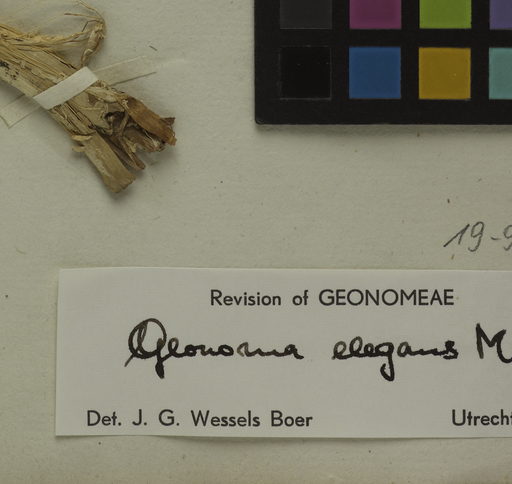 19-9
Revision of GEONOMEAE
Geonoma elegans M
Det. J. G. Wessels Boer Utrecht